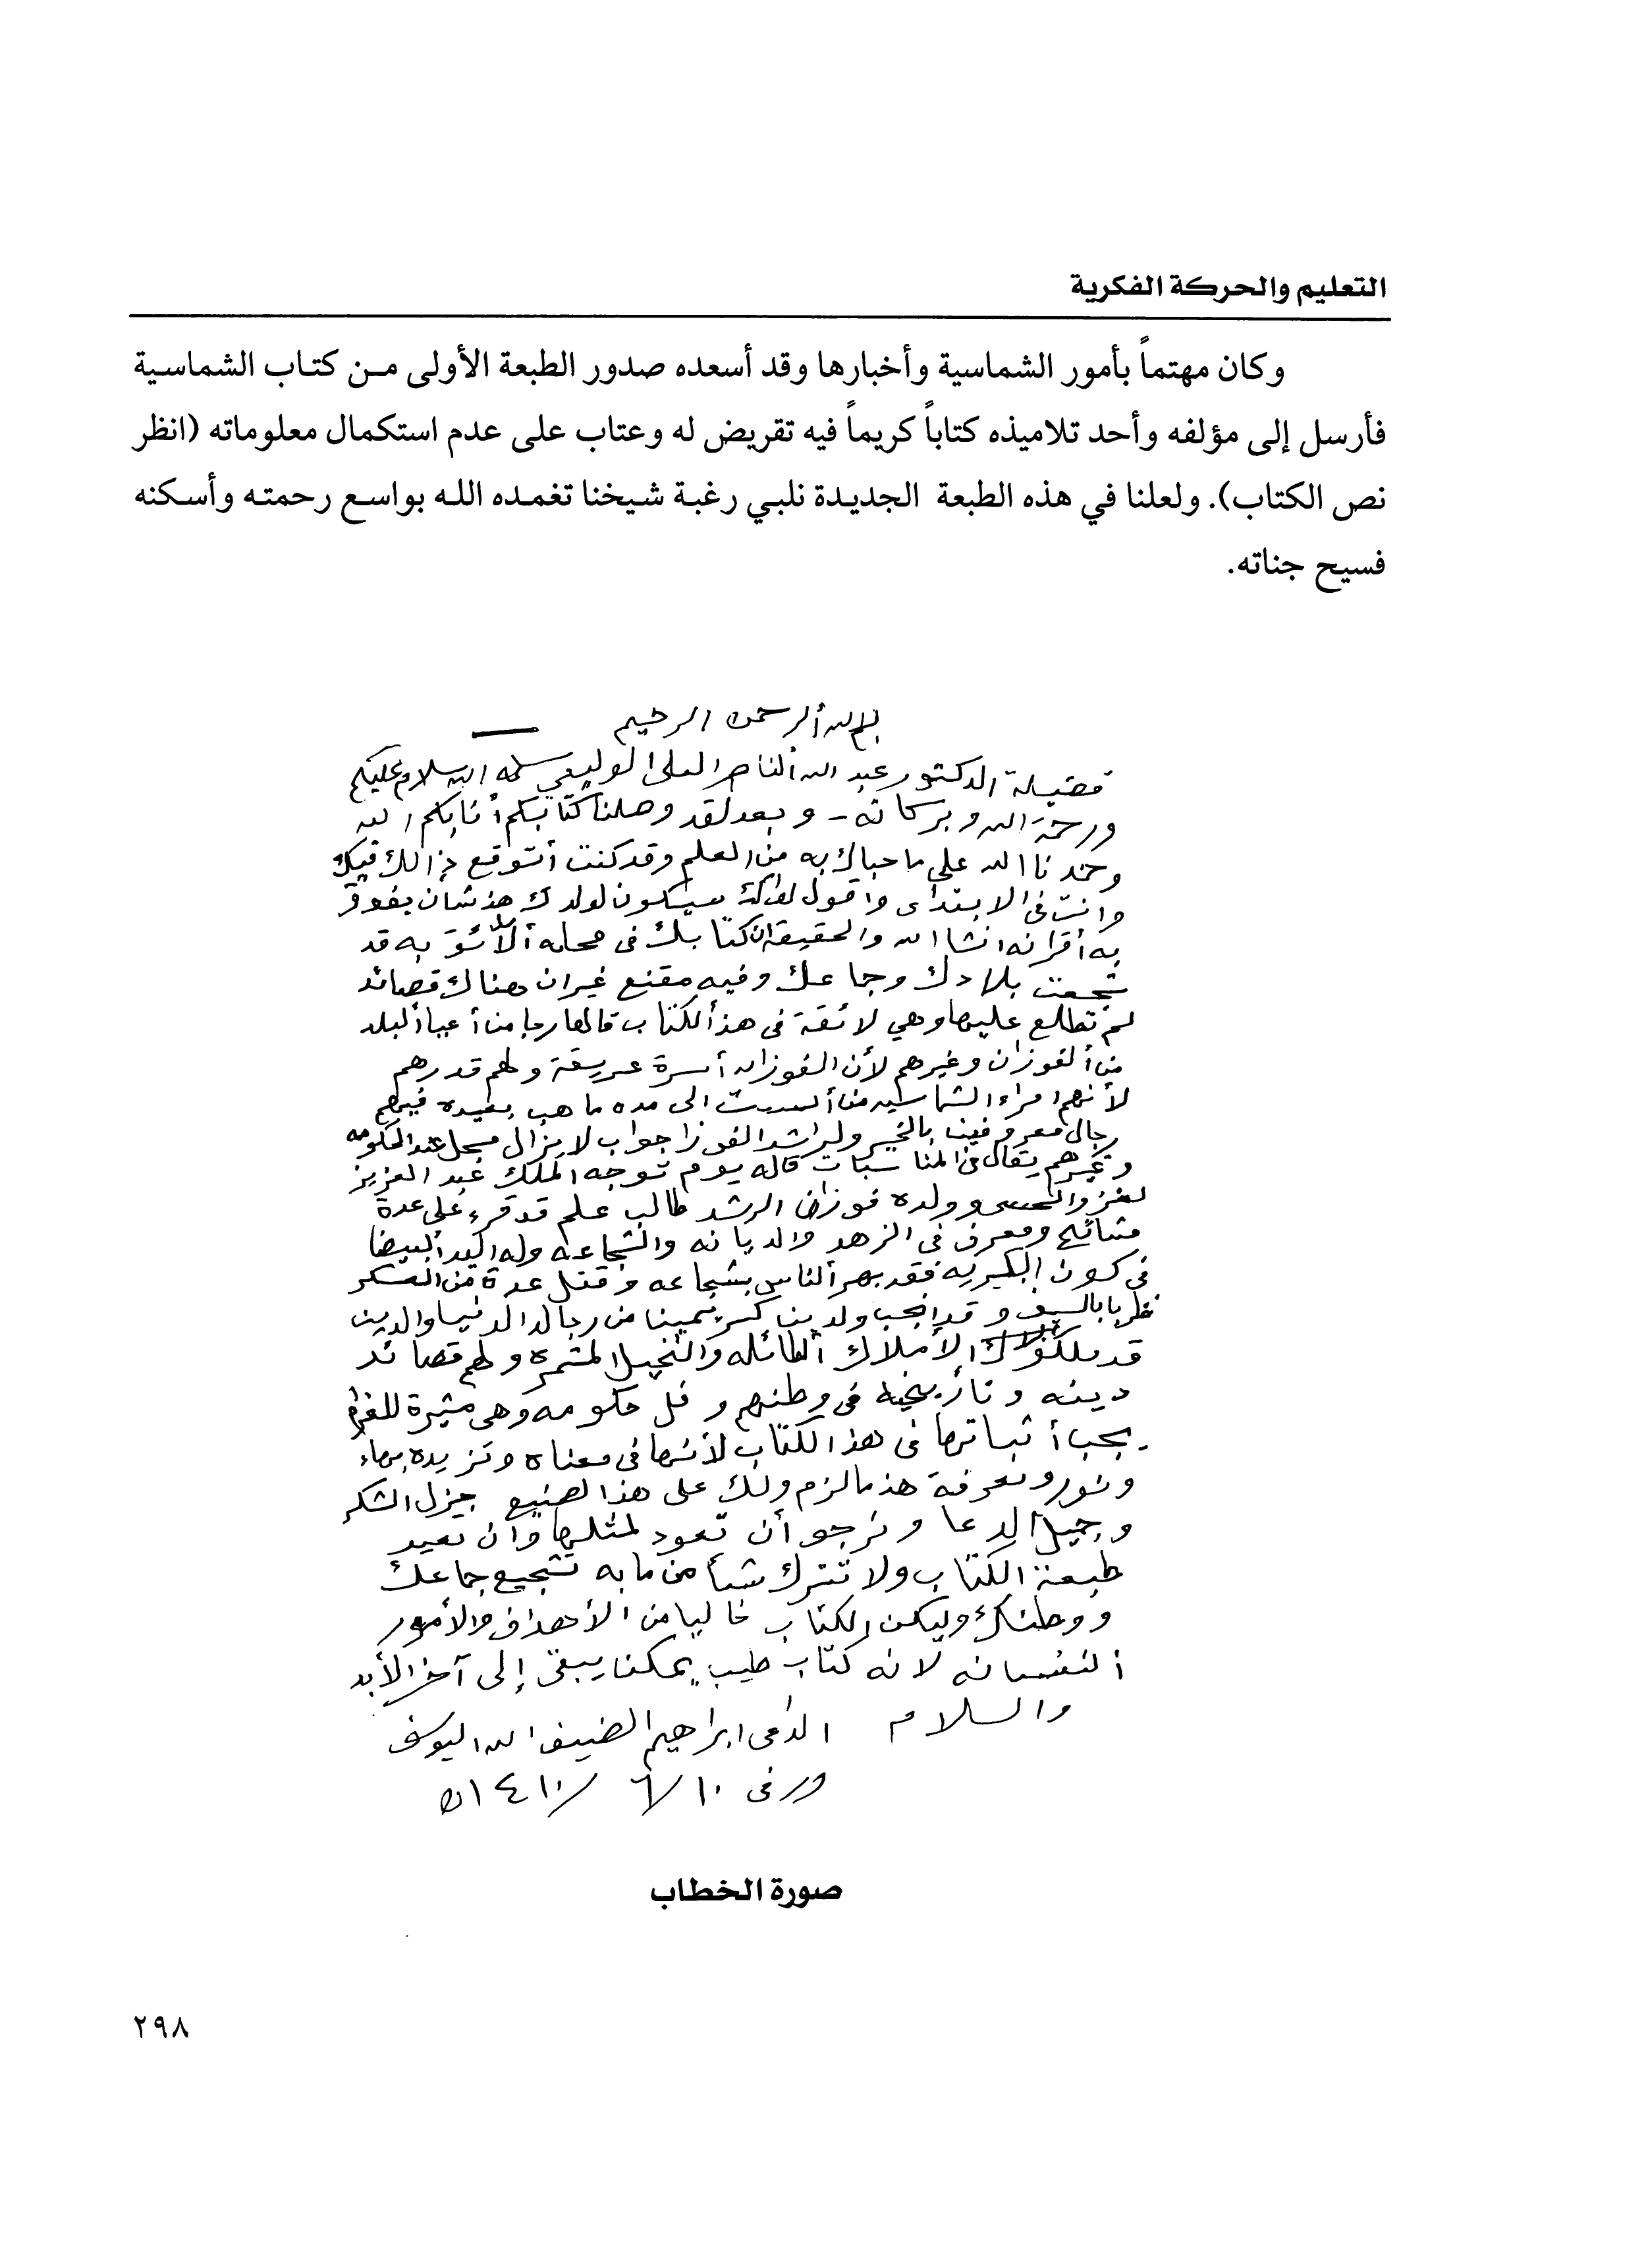 التعليم والحركة الفكرية
وكان مهتماً بأمور الشماسية وأخبارها وقد أسعده صدور الطبعة الأولى مـن كتـاب الشماسـية
فأرسل إلى مؤلفه وأحد تلاميذه كتاباً كريماً فيه تقريض له وعتاب على عدم استكمال معلوماته (انظر
نص الكتاب). ولعلنا في هذه الطبعة الجديـدة نلبـي رغبـة شـيخنا تغمـده اللـه بواسـع رحمتـه وأسـكنه
فسيح جناته.
بسم الله الرحمن الرحيم
فضيلة الدكتور عبد الله الناصر العلى الوليعي سلمه الله سلام عليكم
ورحمة الله وبركاته - وبعد لقد وصلنا كتابكم أثابكم الله
وحمدنا الله على ما حباك به من العلم وقد كنت أتوقع ذالك فيك
وانت فى الابتدائى واقول لوالدك سيكون لولدك هذ شان يفوق
به أقرانه انشا الله والحقيقة ان كتابك فى محله ألائق به قد
شجعت بلادك وجماعتك وفيه مقنع غير ان هناك قصائد
لم تطلع عليها وهي لائقة فى هذ الكتاب قالها رجا من أعيا ألبلد
من ألفوزان وغيرهم لأن الفوزان أسرة عريقة ولهم قدرهم
لأنهم امراء الشماسيه من مده ما هيب بعيده فيهم
رجال معروفين بالخير ولراشد الفوزا جواب لا يزال مسجل عند الحكومه
وغيرهم يقال فى المناسبات قاله يوم توجه الملك عبد العزيز
لغزو وولده فوزان الرشد طالب علم قد قرء على عدة
مشائخ ومعرف فى الزهد والديانه والشجاعه وله اليد ألبيضا
فى كون البكيريه فقد بهر ألناس بشجاعه وقتل عدة من العسكر
ضربا بالسيف وقد انجب ولدين كريمينا من رجال الدنيا والدين
قد ملكو الأملاك ألطائله والنخيل المثمره ولهم قصائد
دينه وتأريخيه فى وطنهم و حكومه وهى مثيرة للغرام
يجب أثباتها فى هذ الكتاب لأنها فى معناه وتزيده بهاء
ونور ومعرفة هذ مالزم ولك على هذا الصنيع جزل الشكر
وجميل الدعا ونرجو أن تعود لمثلها وان تعيد
طبعة الكتاب ولا تترك شيأ من ما به تشجيع جماعتك
ووطنك وليكن الكتاب خاليا من الأهداف والأمور
ألنفسانه لانه كتاب طيب يمكنا يبقى إلى آخر الأبد
والسلام الداعى ابراهيم الضيف الله اليوسف
ورفى ١٠/٦/١٤١٠ه
صورة الخطاب
٢٩٨